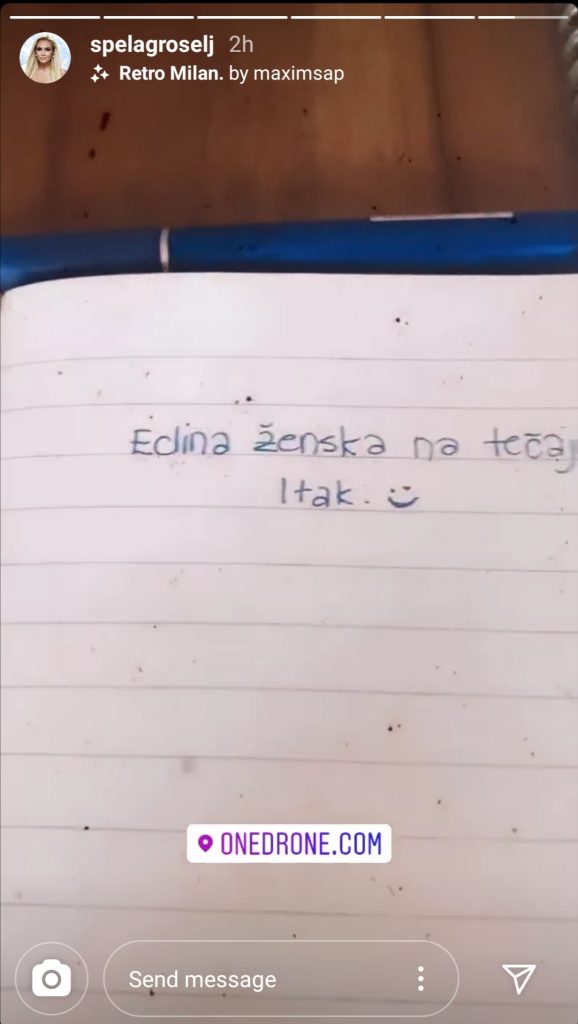 spelagroselj 2h
Retro Milan. by maximsap
Edina ženska na tečaj
Itak. :)
ONEDRONE.COM
Send message